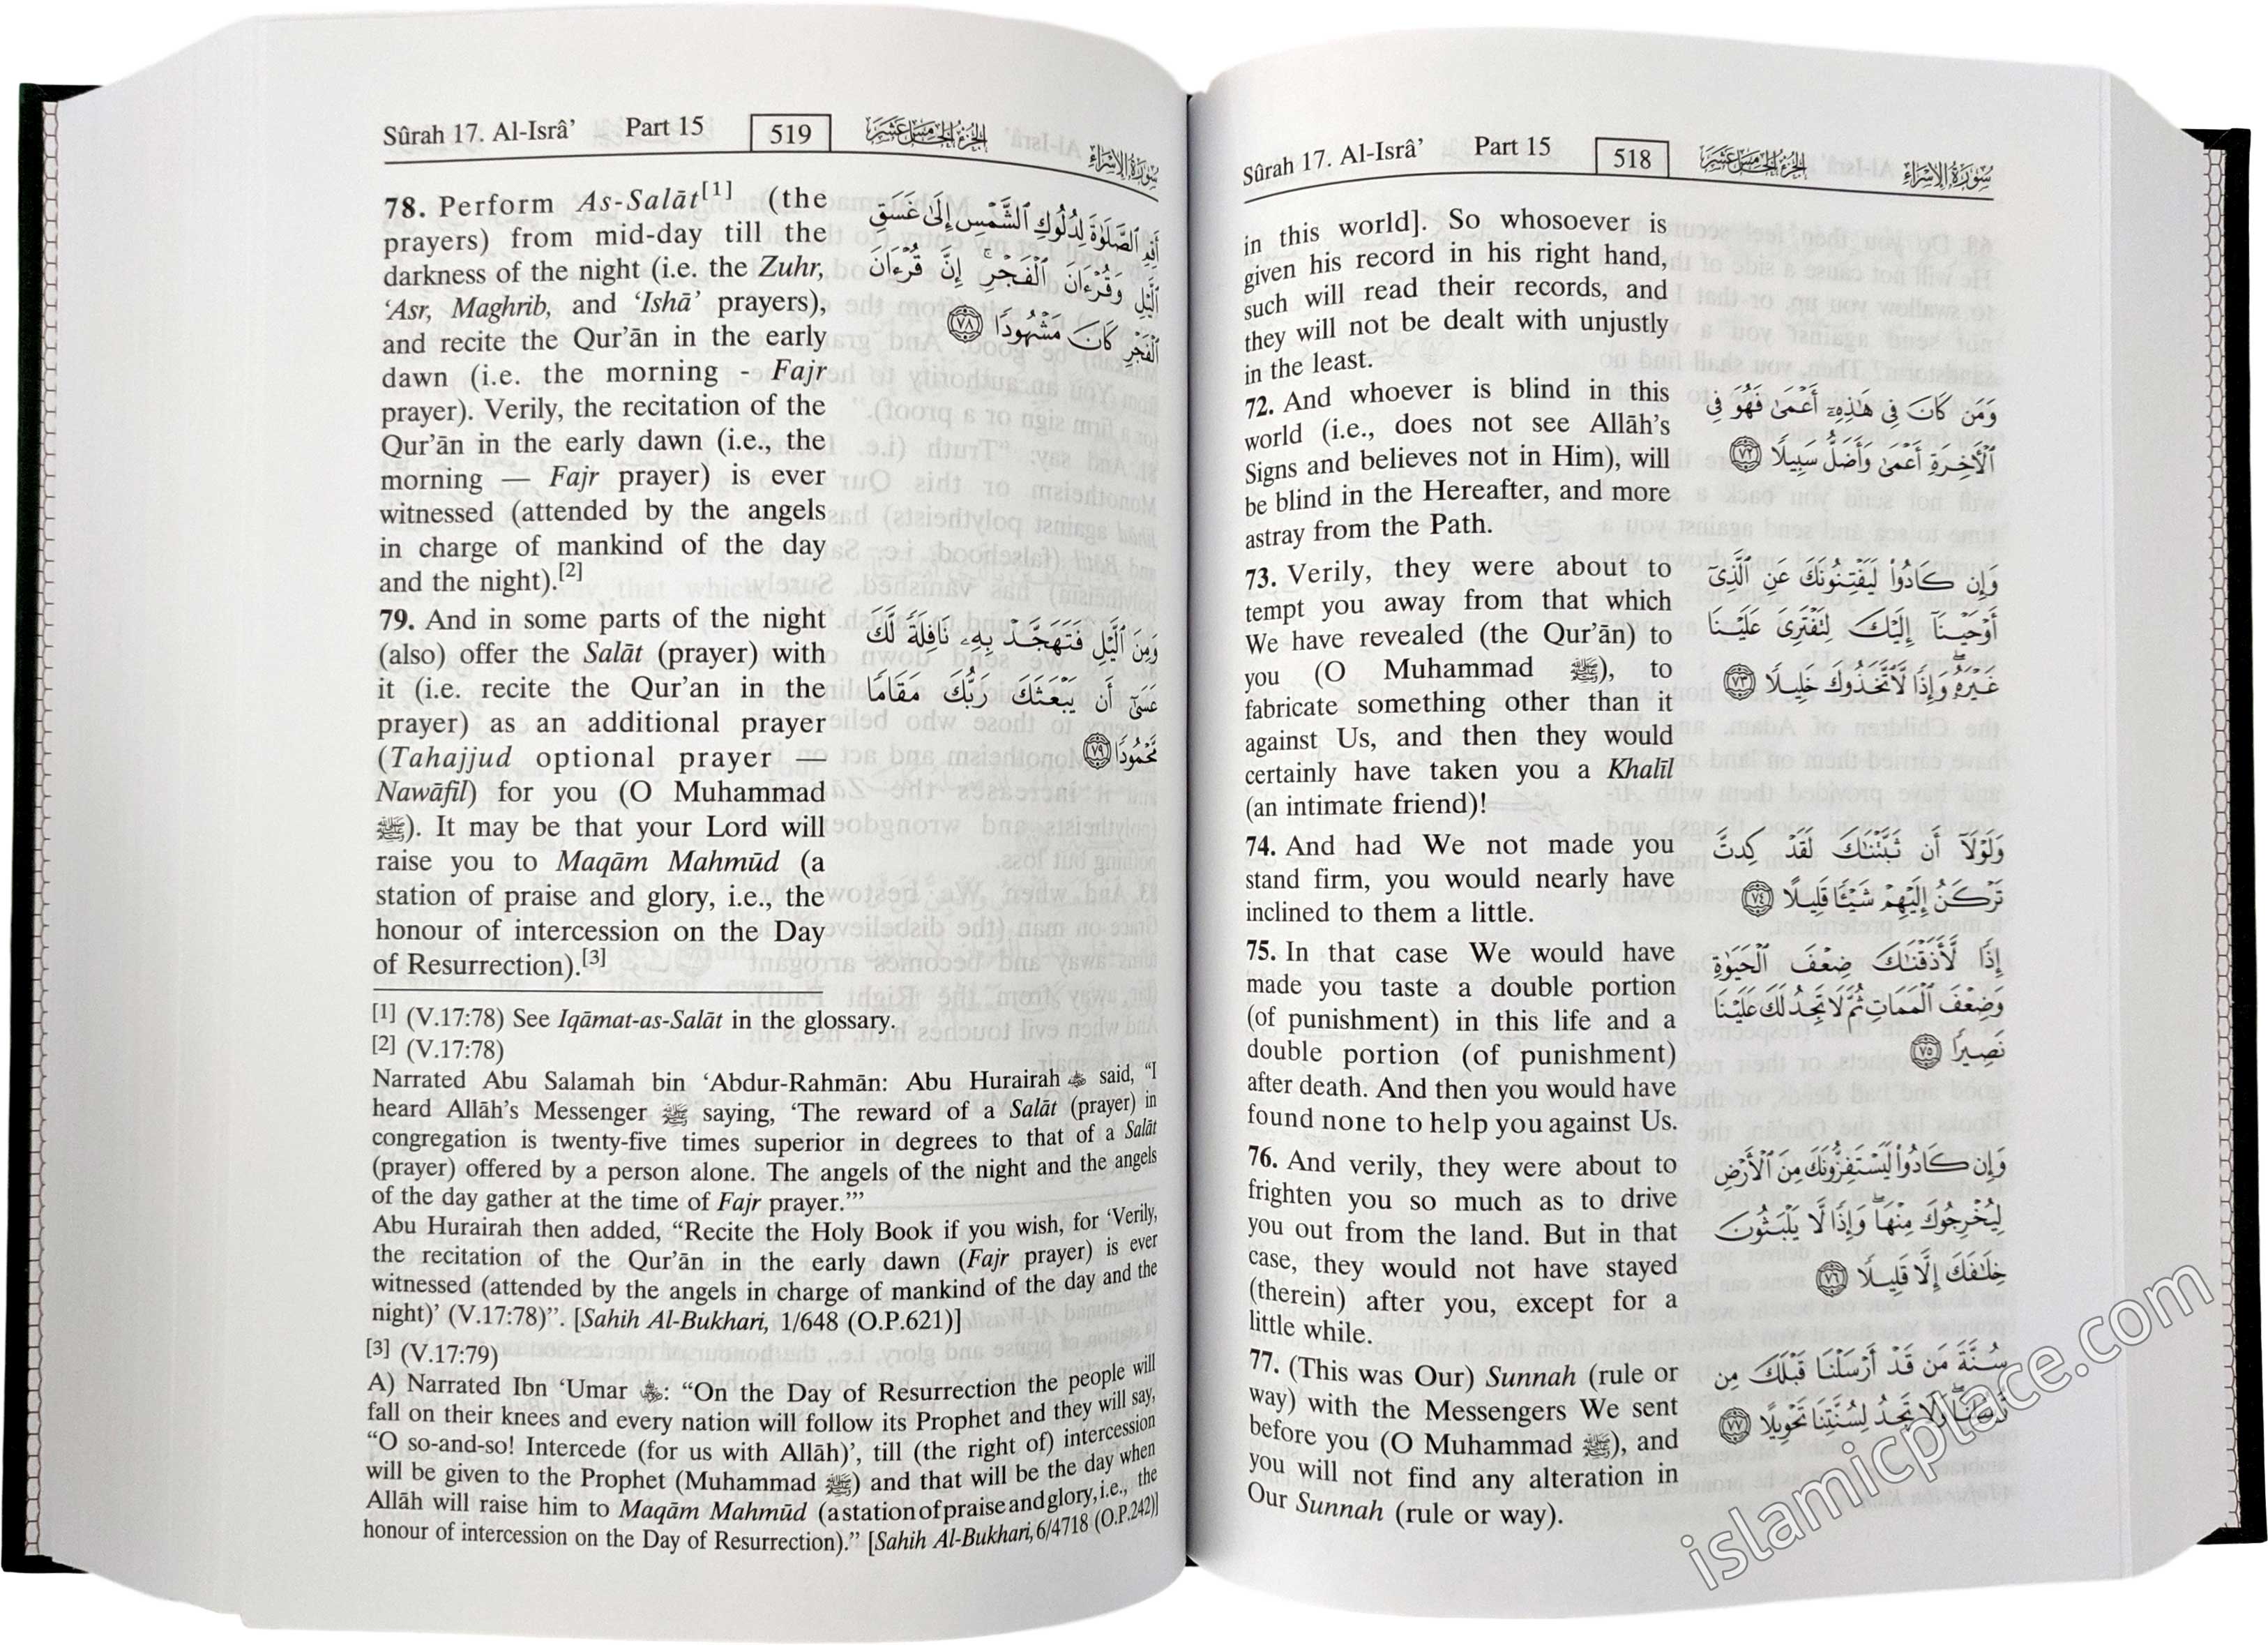 Sûrah 17. Al-Isrâ’ Part 15 518 الجزء الخامس عشر سورة الإسراء
in this world]. So whosoever is
given his record in his right hand,
such will read their records, and
they will not be dealt with unjustly
in the least.
72. And whoever is blind in this
world (i.e., does not see Allāh’s
Signs and believes not in Him), will
be blind in the Hereafter, and more
astray from the Path.
73. Verily, they were about to
tempt you away from that which
We have revealed (the Qur’ān) to
you (O Muhammad ﷺ), to
fabricate something other than it
against Us, and then they would
certainly have taken you a Khalīl
(an intimate friend)!
74. And had We not made you
stand firm, you would nearly have
inclined to them a little.
75. In that case We would have
made you taste a double portion
(of punishment) in this life and a
double portion (of punishment)
after death. And then you would have
found none to help you against Us.
76. And verily, they were about to
frighten you so much as to drive
you out from the land. But in that
case, they would not have stayed
(therein) after you, except for a
little while.
77. (This was Our) Sunnah (rule or
way) with the Messengers We sent
before you (O Muhammad ﷺ), and
you will not find any alteration in
Our Sunnah (rule or way).
وَمَن كَانَ فِى هَـٰذِهِۦٓ أَعْمَىٰ فَهُوَ فِى
ٱلْـَٔاخِرَةِ أَعْمَىٰ وَأَضَلُّ سَبِيلًا ٧٢
وَإِن كَادُوا۟ لَيَفْتِنُونَكَ عَنِ ٱلَّذِىٓ
أَوْحَيْنَآ إِلَيْكَ لِتَفْتَرِىَ عَلَيْنَا
غَيْرَهُۥ ۖ وَإِذًا لَّٱتَّخَذُوكَ خَلِيلًا ٧٣
وَلَوْلَآ أَن ثَبَّتْنَـٰكَ لَقَدْ كِدتَّ
تَرْكَنُ إِلَيْهِمْ شَيْـًٔا قَلِيلًا ٧٤
إِذًا لَّأَذَقْنَـٰكَ ضِعْفَ ٱلْحَيَوٰةِ
وَضِعْفَ ٱلْمَمَاتِ ثُمَّ لَا تَجِدُ لَكَ عَلَيْنَا
نَصِيرًا ٧٥
وَإِن كَادُوا۟ لَيَسْتَفِزُّونَكَ مِنَ ٱلْأَرْضِ
لِيُخْرِجُوكَ مِنْهَا ۖ وَإِذًا لَّا يَلْبَثُونَ
خِلَـٰفَكَ إِلَّا قَلِيلًا ٧٦
سُنَّةَ مَن قَدْ أَرْسَلْنَا قَبْلَكَ مِن
رُّسُلِنَا ۖ وَلَا تَجِدُ لِسُنَّتِنَا تَحْوِيلًا ٧٧
Sûrah 17. Al-Isrâ’ Part 15 519 الجزء الخامس عشر سورة الإسراء
78. Perform As-Salāt[1] (the
prayers) from mid-day till the
darkness of the night (i.e. the Zuhr,
‘Asr, Maghrib, and ‘Ishā’ prayers),
and recite the Qur’ān in the early
dawn (i.e. the morning - Fajr
prayer). Verily, the recitation of the
Qur’ān in the early dawn (i.e., the
morning — Fajr prayer) is ever
witnessed (attended by the angels
in charge of mankind of the day
and the night).[2]
79. And in some parts of the night
(also) offer the Salāt (prayer) with
it (i.e. recite the Qur’an in the
prayer) as an additional prayer
(Tahajjud optional prayer —
Nawāfil) for you (O Muhammad
ﷺ). It may be that your Lord will
raise you to Maqām Mahmūd (a
station of praise and glory, i.e., the
honour of intercession on the Day
of Resurrection).[3]
أَقِمِ ٱلصَّلَوٰةَ لِدُلُوكِ ٱلشَّمْسِ إِلَىٰ غَسَقِ
ٱلَّيْلِ وَقُرْءَانَ ٱلْفَجْرِ ۖ إِنَّ قُرْءَانَ
ٱلْفَجْرِ كَانَ مَشْهُودًا ٧٨
وَمِنَ ٱلَّيْلِ فَتَهَجَّدْ بِهِۦ نَافِلَةً لَّكَ
عَسَىٰٓ أَن يَبْعَثَكَ رَبُّكَ مَقَامًا
مَّحْمُودًا ٧٩
[1] (V.17:78) See Iqāmat-as-Salāt in the glossary.
[2] (V.17:78)
Narrated Abu Salamah bin ‘Abdur-Rahmān: Abu Hurairah said, “I
heard Allāh’s Messenger ﷺ saying, ‘The reward of a Salāt (prayer) in
congregation is twenty-five times superior in degrees to that of a Salāt
(prayer) offered by a person alone. The angels of the night and the angels
of the day gather at the time of Fajr prayer.’”
Abu Hurairah then added, “Recite the Holy Book if you wish, for ‘Verily,
the recitation of the Qur’ān in the early dawn (Fajr prayer) is ever
witnessed (attended by the angels in charge of mankind of the day and the
night)’ (V.17:78)”. [Sahih Al-Bukhari, 1/648 (O.P.621)]
[3] (V.17:79)
A) Narrated Ibn ‘Umar: “On the Day of Resurrection the people will
fall on their knees and every nation will follow its Prophet and they will say,
“O so-and-so! Intercede (for us with Allāh)’, till (the right of) intercession
will be given to the Prophet (Muhammad ﷺ) and that will be the day when
Allāh will raise him to Maqām Mahmūd (a station of praise and glory, i.e., the
honour of intercession on the Day of Resurrection).” [Sahih Al-Bukhari, 6/4718 (O.P.242)]
islamicplace.com